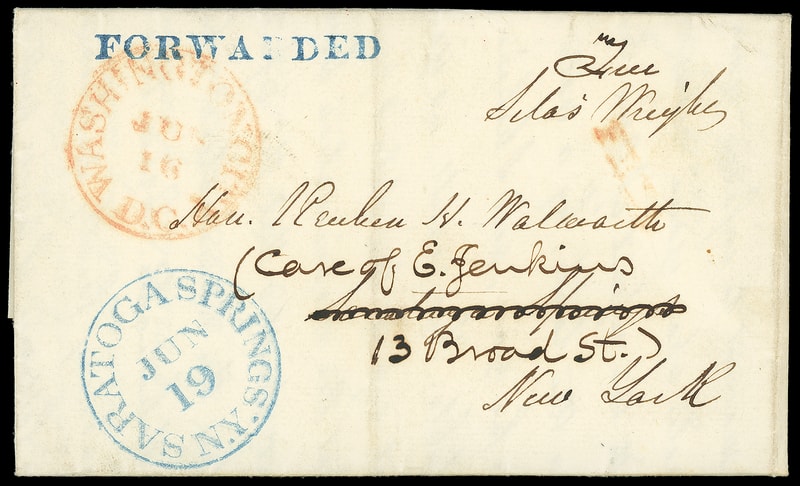 FORWARDED
Free
Silas Wright
WASHINGTON CITY
JUN
16
D.C.
Hon. Reuben H. Walworth
(Care of E. Jenkins
Saratoga Springs
13 Broad St.)
New York
SARATOGA SPRINGS. N.Y.
JUN
19